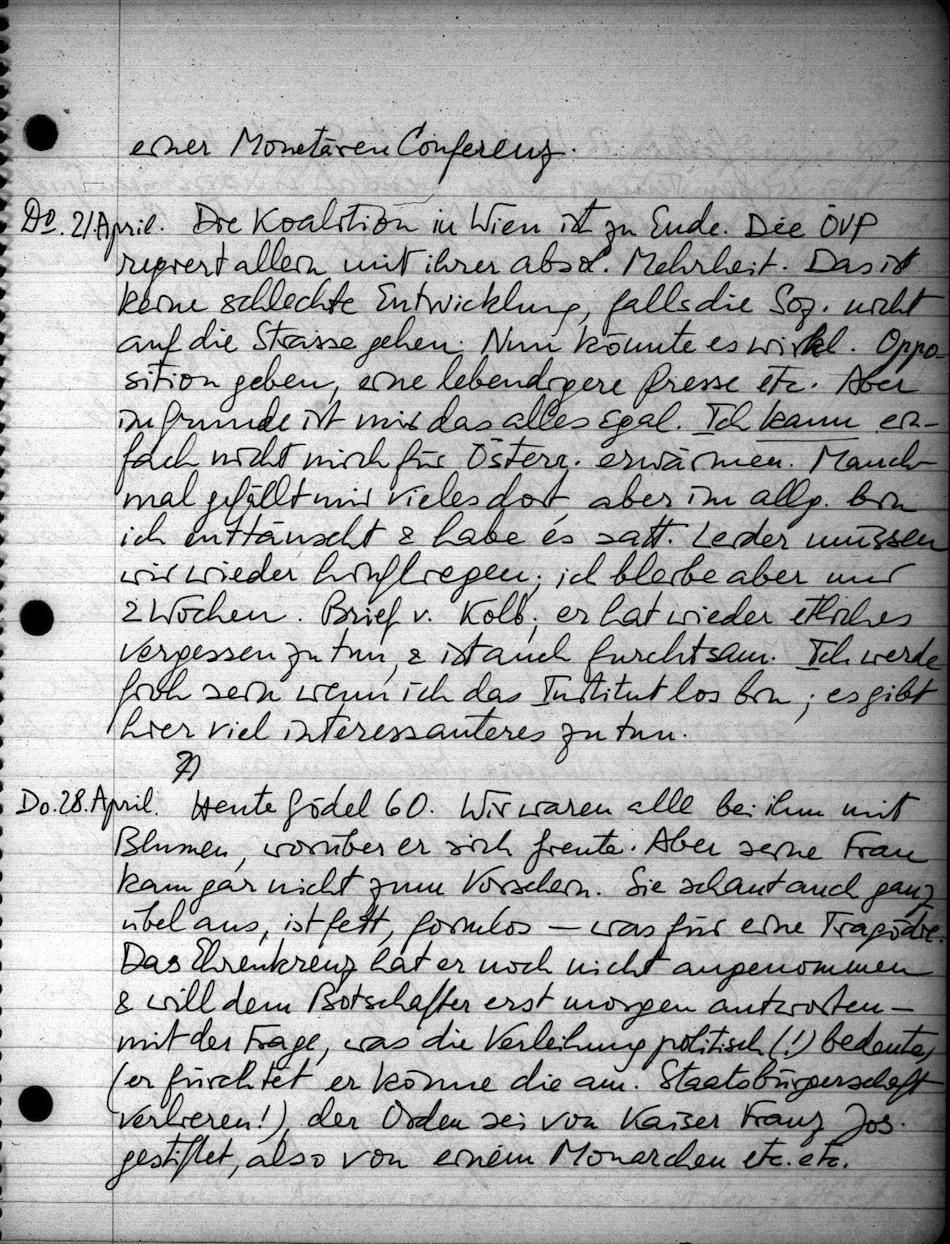 einer Monetären Conferenz.
Do. 21. April. Die Koalition in Wien ist zu Ende. Die ÖVP
regiert allein mit ihrer absol. Mehrheit. Das ist
keine schlechte Entwicklung, falls die Soz. nicht
auf die Strasse gehen. Nun könnte es wirkl. Oppo-
sition geben, eine lebendigere Presse etc. Aber
im Grunde ist mir das alles egal. Ich kann ein-
fach nicht mich für Österr. erwärmen. Manch-
mal gefällt mir vieles dort, aber im allg. bin
ich enttäuscht & habe es satt. Leider müssen
wir wieder hinfliegen; ich bleibe aber nur
2 Wochen. Brief v. Kolb; er hat wieder etliches
vergessen zu tun, & ist auch furchtsam. Ich werde
froh sein wenn ich das Institut los bin; es gibt
hier viel interessanteres zu tun.
Do. 28. April. Heute Gödel 60. Wir waren alle bei ihm mit
Blumen, worüber er sich freute. Aber seine Frau
kam gar nicht zum Vorschein. Sie schaut auch ganz
übel aus, ist fett, formlos – was für eine Tragödie.
Das Ehrenkreuz hat er noch nicht angenommen
& will dem Botschafter erst morgen antworten –
mit der Frage, was die Verleihung politisch (!) bedeute,
(er fürchtet er könne die am. Staatsbürgerschaft
verlieren!), der Orden sei von Kaiser Franz Jos.
gestiftet, also von einem Monarchen etc. etc.